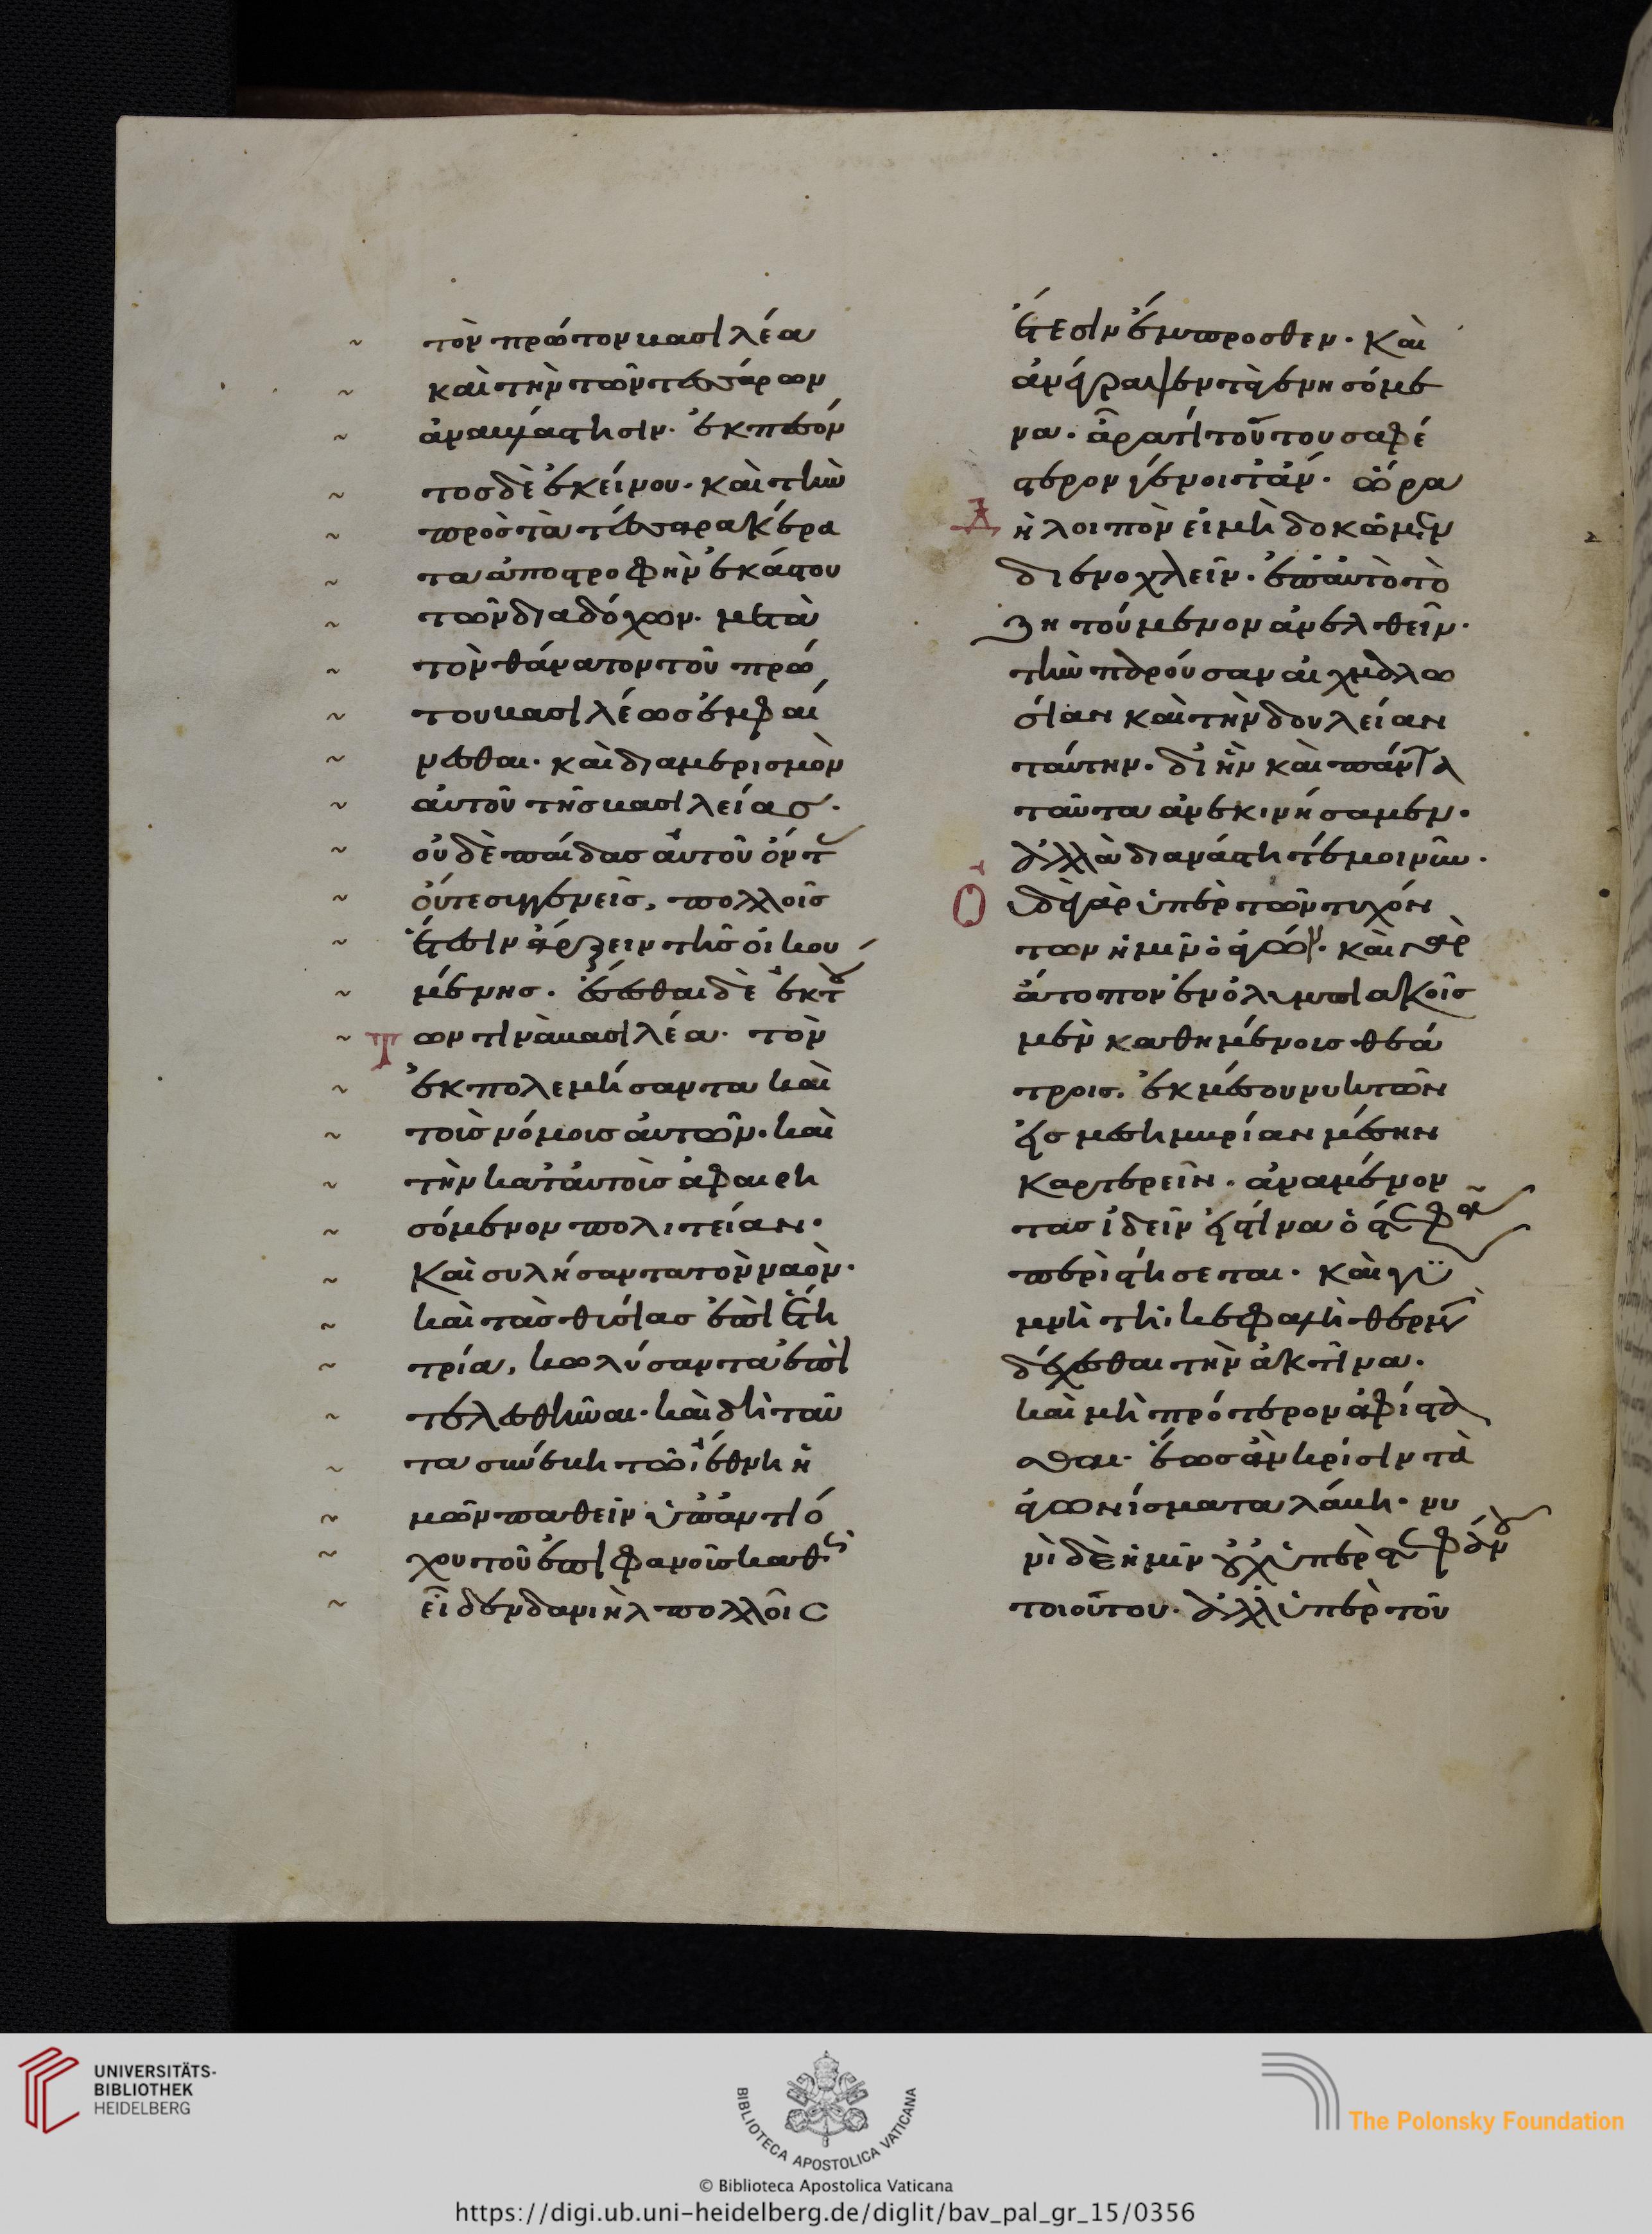 τὸν πρῶτον βασιλέα
καὶ τὴν τῶν τεσσάρων
ἀναβλάστησιν. ἐκπεσόν
τος δὲ ἐκείνου. καὶ τὴν
πρὸς τὰ τέσσαρα κέρα
τα ἀποστροφὴν ἑκάστου
τῶν διαδόχων. μετὰ
τὸν θάνατον τοῦ πρώ
του βασιλέως ἐμφαί
νεσθαι. καὶ διαμερισμὸν
αὐτοῦ τῆς βασιλείας.
οὐδὲ παῖδας αὐτοῦ ὄντ
οὔτε συγγενεῖς, πολλοῖς
ἔτεσιν ἄρξειν τῆς οἰκου
μένης. ἔσεσθαι δὲ ἐκ τού
των τινὰ βασιλέα. τὸν
ἐκπολεμήσαντα καὶ
τοῖς νόμοις αὐτῶν. καὶ
τὴν κατ' αὐτοὺς ἀφαιρη
σόμενον πολιτείαν.
Καὶ συλήσαντα τὸν ναὸν.
καὶ τὰς θυσίας ἐπὶ ἔτη
τρία, κωλύσαντα ἐπὶ
τελεσθῆναι. καὶ δὴ ταῦ
τα συνέβη τῶ ἔθνη ἡ
μῶν παθεῖν ὑπ' ἀντιό
χου τοῦ ἐπιφανοῦς καθ
εἶδεν δανιὴλ πολλοῖς
ἔτεσιν ἔμπροσθεν. Καὶ
ἀνέγραψεν τὰ γενησόμε
να. ἆρά τί τούτου σαφέ
στερον γένοιτ' ἄν. ὥρα
δὴ λοιπὸν εἰ μὴ δοκῶμεν
διενοχλεῖν. ἐπ' αὐτὸ τὸ
ζητούμενον ἀνελθεῖν.
τὴν παροῦσαν αἰχμαλω
σίαν καὶ τὴν δουλείαν
ταύτην. δι' ἣν καὶ πάντα
ταῦτα ἀνεκινήσαμεν.
ἀλλὰ διανάστητέ μοι νῦν.
Οὐδὲ γὰρ ὑπὲρ τῶν τυχόν
των ἡμῖν ὁ ἀγών. καὶ γὰρ
ἄτοπον ἐν ὀλυμπιακοῖς
μὲν καθημένοις θεά
τροις. ἐκ μέσου νυκτῶν
ἐς μεσημυρίαν μέσην
Καρτερεῖν. ἀναμένον
τας ἰδεῖν ἐς τίνα ὁ στέφαν
περιστήσεται. καὶ γυ
μνὴ τῆ κεφαλὴ θερμὴν
δέχεσθαι τὴν ἀκτῖνα.
καὶ μὴ πρότερον ἀφίστα
σθαι. ἕως ἂν κρίσιν τὰ
ἀγωνίσματα λάβη. νυ
νὶ δὲ ἡμῖν οὐχ ὑπὲρ στεφάνου
τοιούτου. ἀλλ' ὑπὲρ τοῦ
UNIVERSITÄTS-
BIBLIOTHEK
HEIDELBERG
BIBLIOTECA APOSTOLICA VATICANA
The Polonsky Foundation
© Biblioteca Apostolica Vaticana
https://digi.ub.uni-heidelberg.de/diglit/bav_pal_gr_15/0356